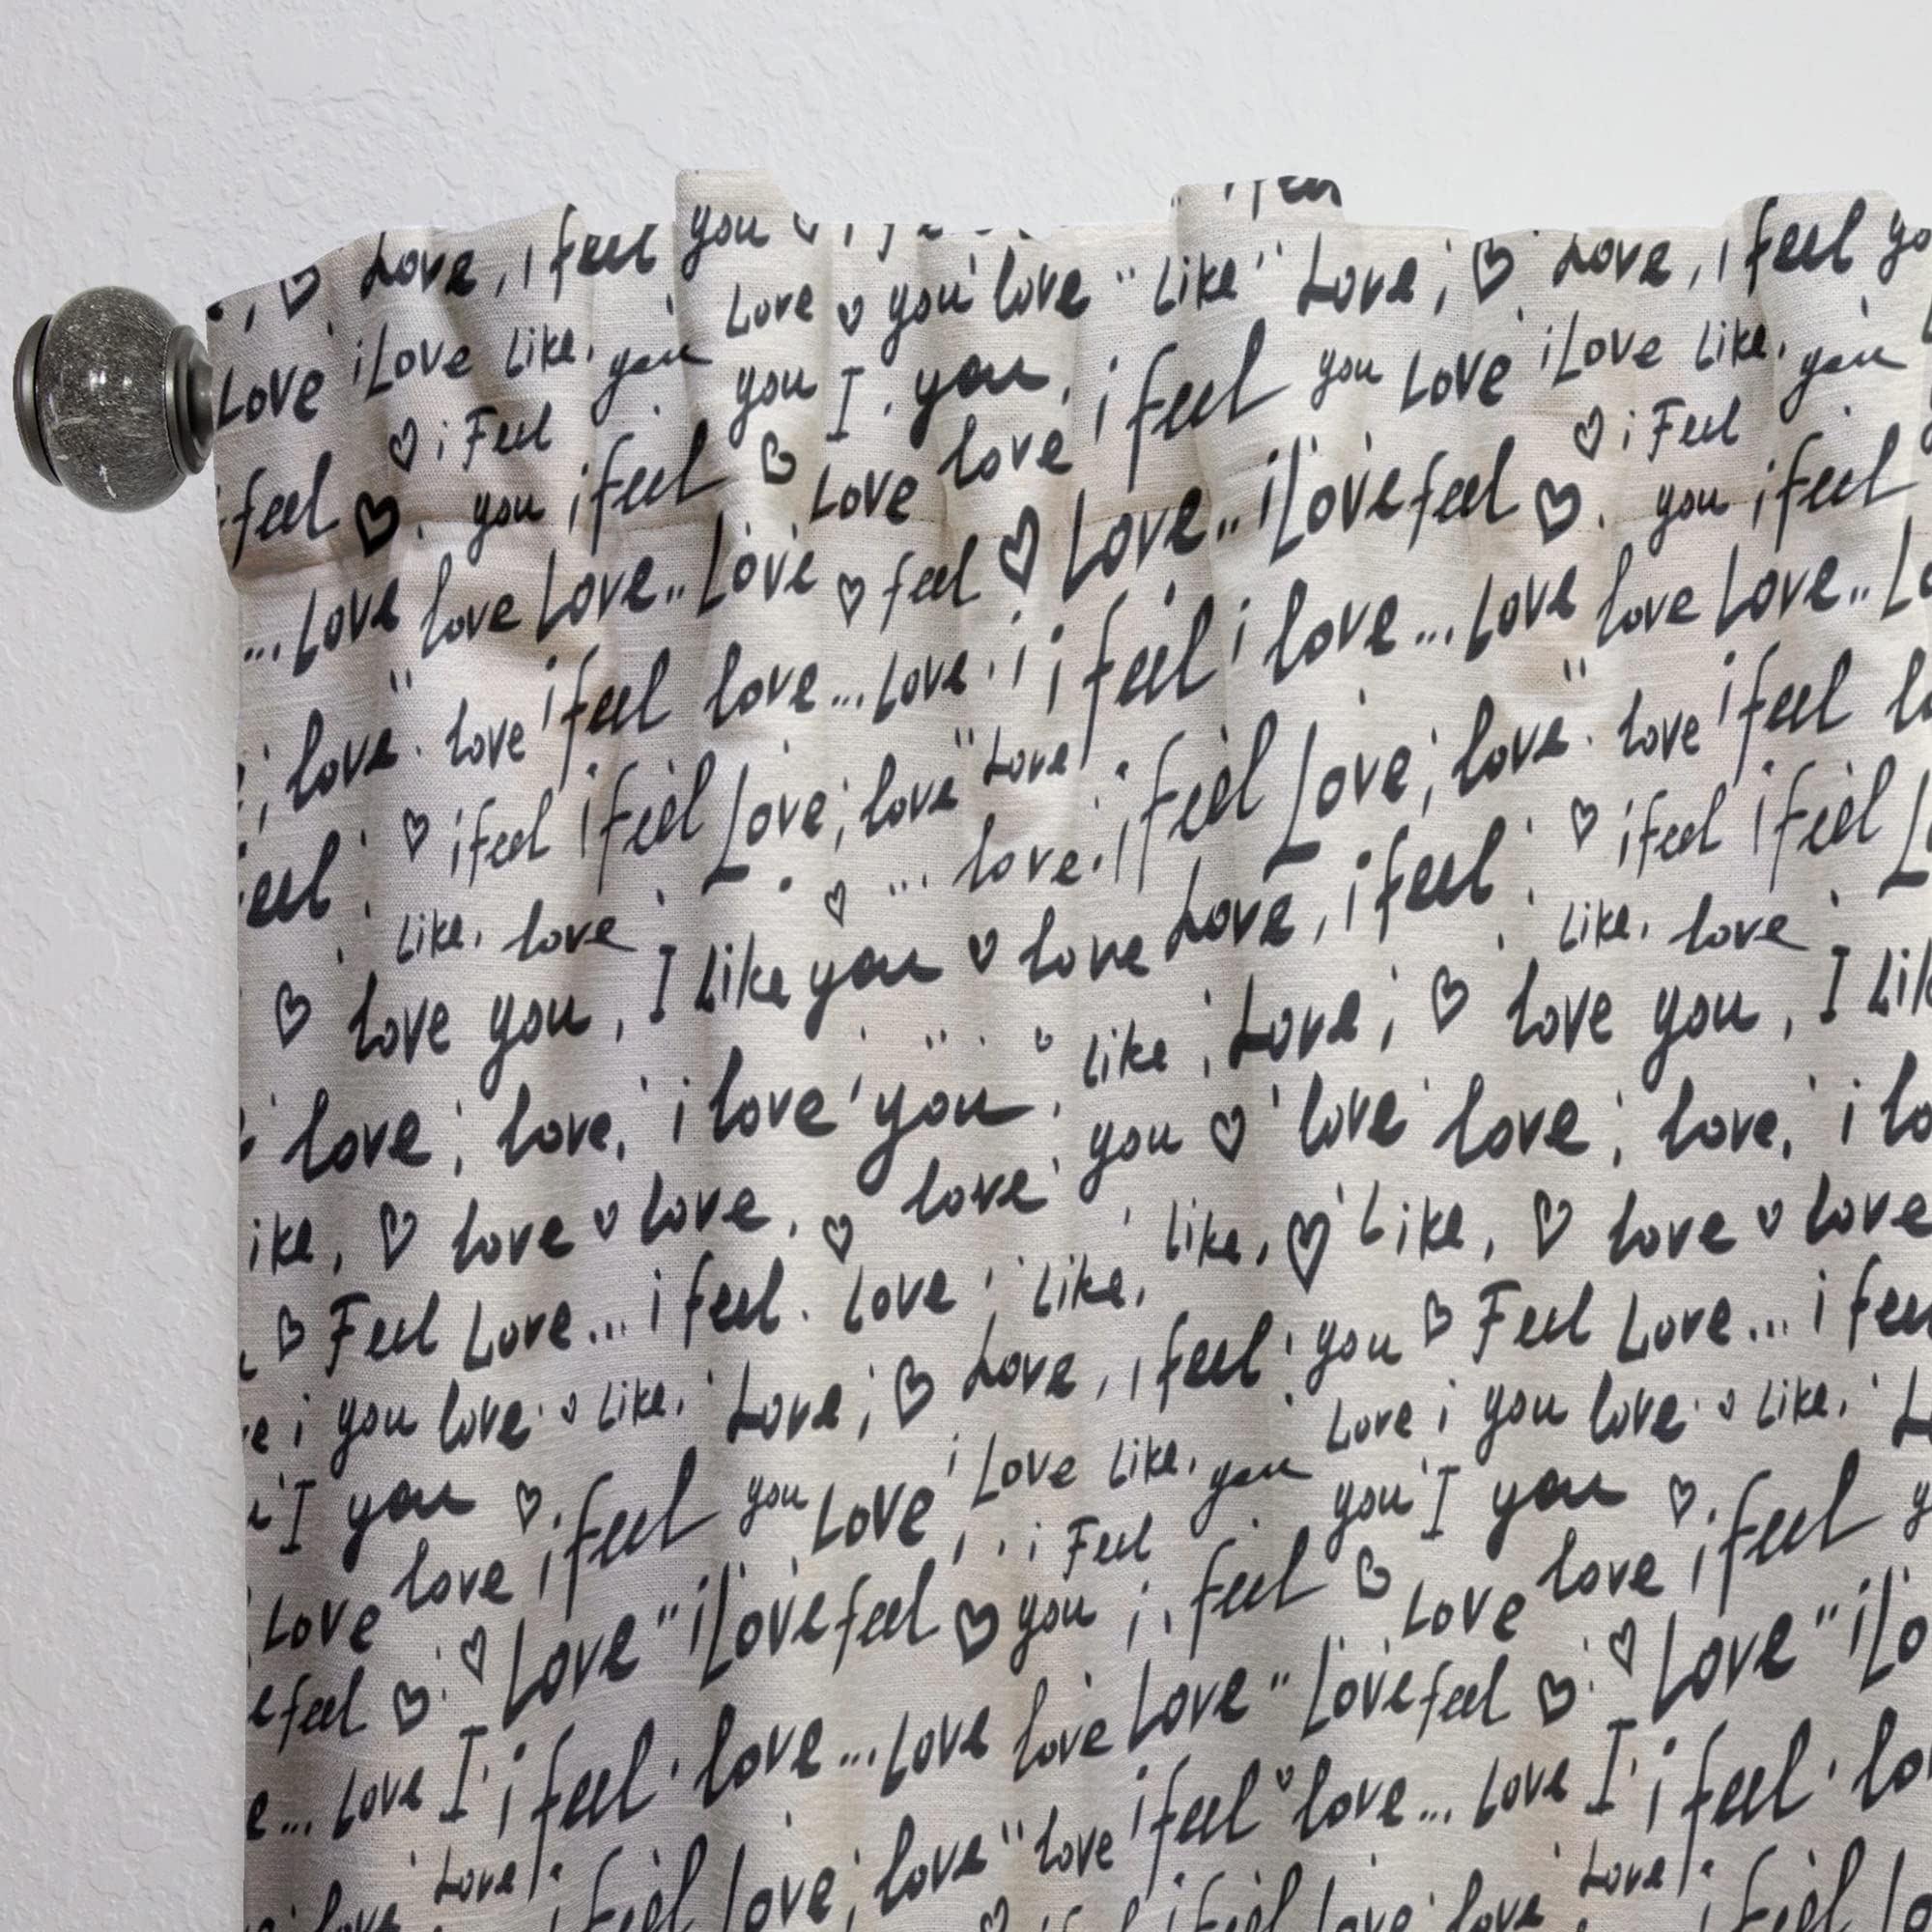 Love, i feel you Love, i feel
Love you love "Like" Love;
Love iLove Like. you you I. you, i feel you Love iLove Like. you
i Feel love i Feel
feel you i feel Love Love.. iLove feel you i feel
... Love love Love.. Love feel i i feel i love... Love love Love..
; love. love i feel love... Love. i feel Love; love. love i feel
i feel i feel Love; love "Love i feel i feel
Like. love ... love. Love, i feel Like. love
love you, I Like you love Love; love you, I
like
love; love, i love you. you love love; love, i
love love, love Like, Like, love love
Feel Love... i feel. Love Like, you Feel Love... i
i you love Like, Love; Love, i feel Love i you love Like,
I you i feel you Love i Love Like. you you I you i feel
Love love i Feel Love love
feel Love" iLove feel you i. feel Love"
... Love I i feel love... Love love Love" Love feel
Love love; love" love i feel love... Love I i feel
Love